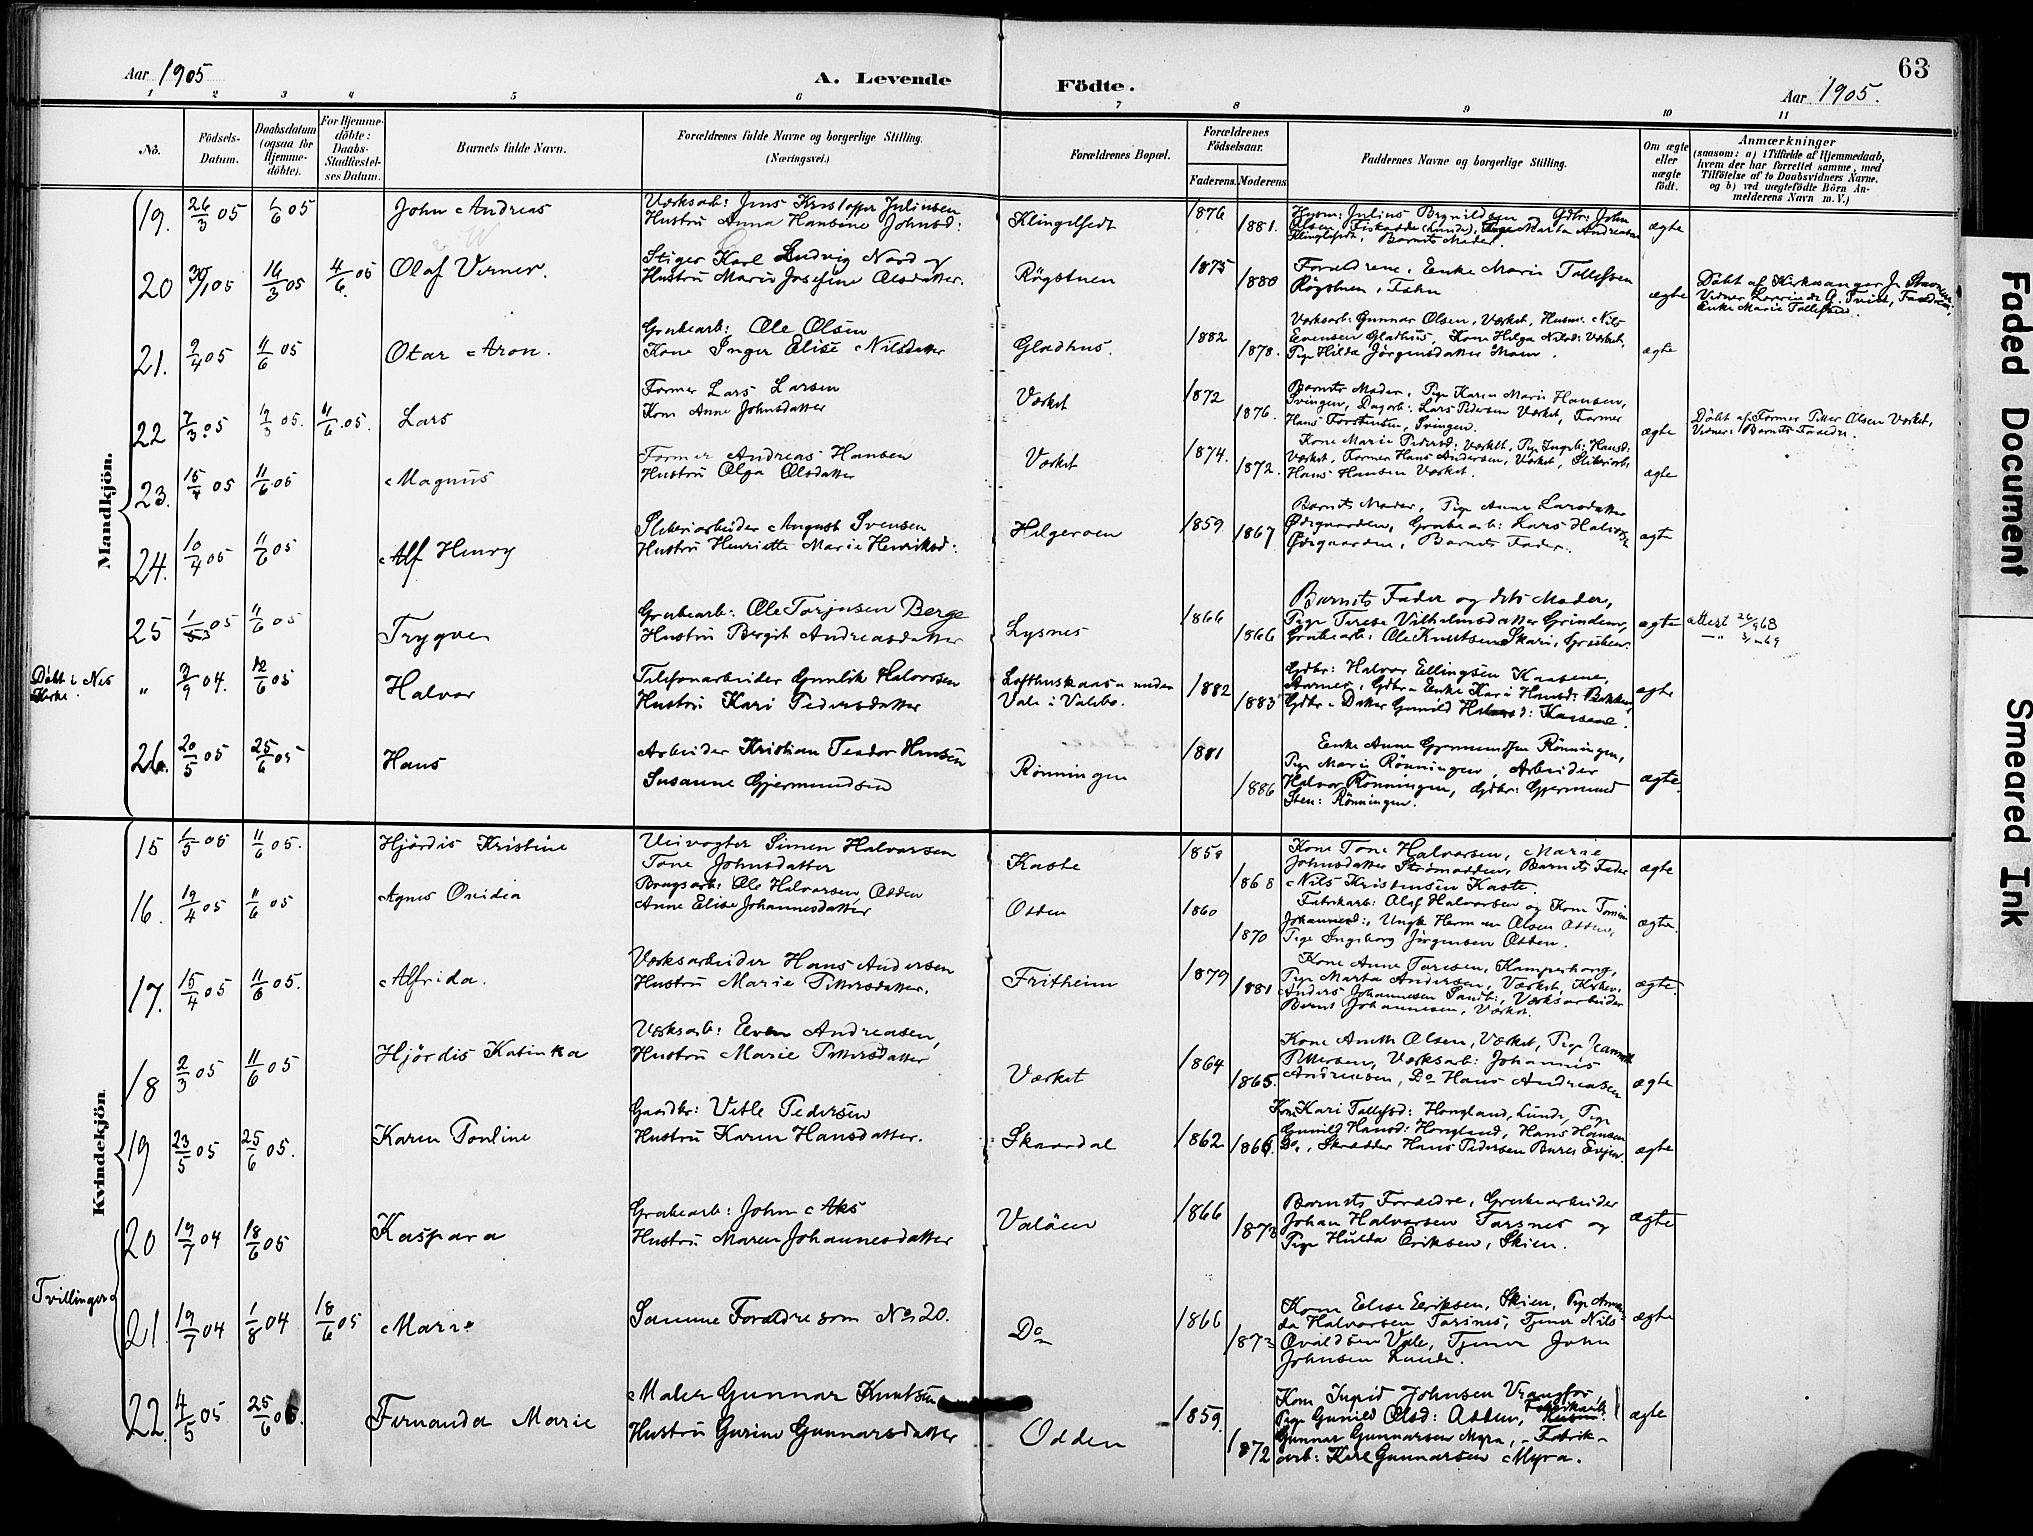 Aar 1905
A. Levende Födte.
63
Aar 1905.
1 2 3 4 5 6 7 8 9 10 11
No.
Födsels-
Datum.
Daabsdatum
(ogsaa for
Hjemme-
döbte).
For Hjemme-
döbte:
Daabs-
Stadfæstel-
ses Datum.
Barnets fulde Navn.
Forældrenes fulde Navne og borgerlige Stilling.
(Næringsvei.)
Forældrenes Bopæl.
Forældrenes
Födselsaar.
Faderens. Moderens.
Faddernes Navne og borgerlige Stilling.
Om ægte
eller
uægte
födt.
Anmærkninger
(saasom: a) i Tilfælde af Hjemmedaab,
hvem der har forrettet samme, med
Tilföielse af to Daabsvidners Navne,
og b) ved uægtefödte Börn An-
melderens Navn m. V.)
Mandkjön.
19. 26/3 05 1/6 05 John Andreas
Værksarb: Jens Kristoffer Juliusen
Hustru Anna Hansine Johnsd:
Klinglefedt 1876 1881.
Husm: Julius Brynildsen Gdbr: John
Olsen Fiskodde (Lunde), Pige Marta Andreasen
Klinglefedt, Barnets Moder.
ægte
20 30/1 05 16/3 05 11/6 05 Olaf Verner.
Stiger Karl Ludvig Nord og
Hustru Marie Josefine Olsdatter.
Rögstuen 1875 1880
Forældrene, Enke Marie Tollefsen
Rögstuen, Fehn
ægte
Döbt af Kirkesanger J. Stavnem
Vidner Lærerinde G. Tvidt,
Enke Marie Tollefsen.
21. 2/4 05 11/6 05 Otar Aron.
Grubearb: Ole Olsen
Kone Inger Elise Nilsdatter
Gladhus. 1882 1878.
Værksarb: Gunnar Olsen, Værket, Husm: Nils
Evensen Gladhus, Kone Helga Nilsd: Værket,
Pige Hilda Jörgensdatter Moen.
ægte
22 7/3 05 12/3 05. 11/6 05. Lars
Former Lars Larsen
Kone Anne Johnsdatter
Værket 1872 1876.
Barnets Moder, Pige Karen Marie Hansen,
Svingen, Dagarb: Lars Pedersen Værket, Former
Hans Torstensen, Svingen.
ægte
Döbt af Former Petter Olsen Værket,
Vidner: Barnets Forældre.
23. 15/4 05 11/6 05 Magnus
Former Andreas Hansen
Hustru Olga Olsdatter
Værket 1874. 1872.
Kone Marie Pedersd: Værket, Pige Ingeb: Hansd:
Værket, Former Hans Andersen, Værket, Sliberiarb:
Hans Hansen Værket.
ægte
24. 10/4 05 11/6 05 Alf Henry
Sliberiarbeider August Svensen
Hustru Henriette Marie Henriksd:
Helgeroen 1859 1867
Barnets Moder, Pige Anne Larsdatter
Ødegaarden, Grubearb: Lars Halvorsen
Ødegaarden, Barnets Fader.
ægte
25 1/3 05 11/6 05 Trygve
Grubearb: Ole Torjusen Berge
Hustru Bergit Andreasdatter
Lysnes 1866 1866
Barnets Fader og dets Moder,
Pige Terese Vilhelmsdatter Grinden,
Grubearb: Ole Knutsen Skari, Grinden.
ægte
attest 26/9 68
— " — 3/11 69
Döbt i Nes
Kirke.
" 3/9 04. 12/6 05 Halvor
Telefonarbeider Gunlik Halvorsen
Hustru Kari Pedersdatter
Lofthuskaasa under
Vale i Valebø. 1882 1883
Gdbr: Halvor Ellingsen Kaasene,
Aarnes, Gdbr-Enke Kari Hansd: Bakken,
Gdbr-Datter Gunild Halvorsd: Kaasene.
ægte
26. 20/5 05 25/6 05 Hans
Arbeider Kristian Teodor Hansen
Susanne Gjermundsen
Rönningen 1881 1886
Enke Anne Gjermundsen Rönningen,
Pige Marie Rönningen, Arbeider
Halvor Rönningen, Gdbr: Gjermund
Sten: Rönningen.
ægte.
Kvindekjön.
15 1/5 05 11/6 05. Hjördis Kristine
Veivogter Simen Halvorsen
Tone Johnsdatter
Kaste 1858 1868
Kone Tone Halvorsen, Marie
Johnsdatter Strömodden, Barnets Fader
Nils Kristensen Kaste.
ægte
16. 19/4 05 11/6 05 Agnes Ovidia
Brugsarb: Ole Halvorsen, Odden
Anne Elise Johannesdatter
Odden 1860 1870
Fabrikarb: Olaf Halvorsen og Kone
Johannesd:, Ungk Herman Olsen Odden,
Pige Ingeborg Jörgensen Odden.
ægte.
17. 15/4 05 11/6 05. Alfrida.
Værksarbeider Hans Andersen
Hustru Marie Pettersdatter.
Fritheim 1879 1881
Kone Anne Taresen, Kamperhoug,
Pige Marta Andersen, Værket, Kirkev.
Anders Johannesen Sandb:, Værksarbeider
Bernt Johannesen, Værket.
ægte.
18 2/3 05 11/6 05 Hjördis Katinka
Værksarb: Even Andreasen,
Hustru Marie Pettersdatter
Værket 1864 1865.
Kone Anette Olsen, Værket, Pige Jeannett
Pettersen, Værksarb: Johannes
Andreasen, Do Hans Andreasen
ægte
19 23/5 05 25/6 05. Karen Tonline
Gaardbr: Vetle Pedersen
Hustru Karen Hansdatter.
Skaardal 1862 1866.
Kone Kari Tollefsd: Hougland, Lunde, Pige
Gunild Hansd: Hougland, Hans Hansen
Do, Skrædder Hans Pedersen Bures Evjen.
ægte
Tvillinger
20 19/7 04 18/6 05 Kaspara
Grubearb: John Aks
Hustru Maren Johannesdatter
Valöen 1866 1873
Barnets Forældre, Grubearbeider
Johan Halvorsen Torsnes og
Pige Hulda Eriksen, Skien.
ægte
21. 19/7 04 1/8 04 18/6 05 Marie
Samme Forældre som No 20.
Do 1866 1873
Kone Elise Eriksen, Skien, Pige Aman-
da Halvorsen Torsnes, Tjener Nils
Ovaldsen Vale, Tjener John
Johnsen Lunde.
ægte
22. 4/5 05 25/6 05. Fernanda Marie
Maler Gunnar Knutsen
Hustru Gurine Gunnarsdatter
Odden 1859. 1872
Kone Ingrid Johnsen Vrangfos,
Pige Gunild Olsd: Odden, Fabrikarb:
Gunnar Gunnarsen Myra, Fabrik-
arb: Karl Gunnarsen Myra.
ægte
Faded Document
Smeared Ink